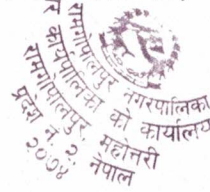 रामगोपालपुर नगरपालिका
र कार्यपालिका को कार्यालय
रामगोपालपुर, महोत्तरी
प्रदेश नं. २, नेपाल
२०७४